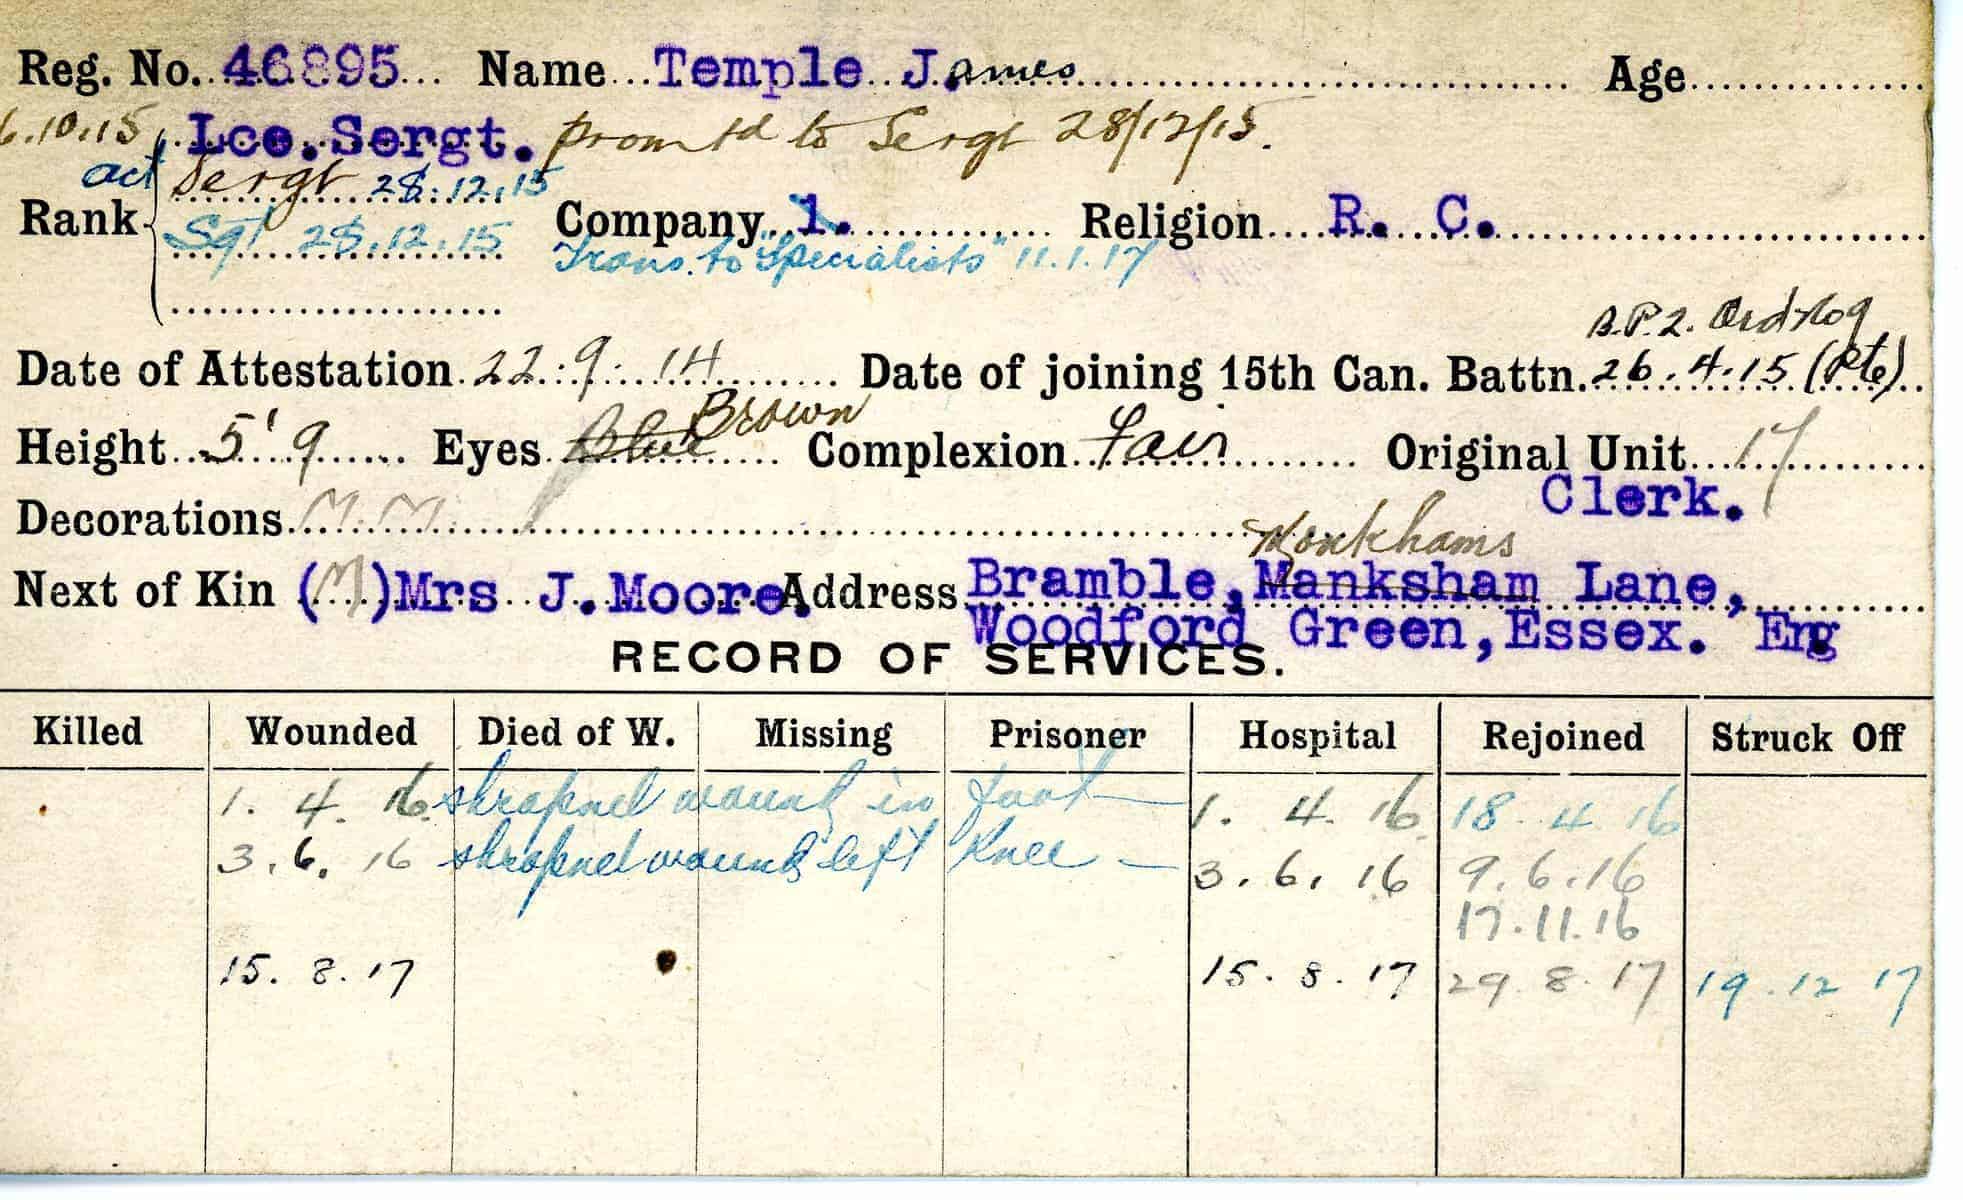 Reg. No. 46895 Name Temple James Age
6.10.15 Lce. Sergt. promtd to Sergt 28/12/15.
act Sergt 28.12.15
Rank Sgt 28.12.15 Company 1. Religion R. C.
Trans. to "Specialists" 11.1.17
B.P.2. Ord
Date of Attestation 22.9.14 Date of joining 15th Can. Battn. 26.4.15 (Pte)
Height 5' 9 Eyes Blue Brown Complexion Fair Original Unit 17
Clerk.
Decorations M.M.
Monkhams
Next of Kin (M) Mrs J. Moore. Address Bramble, Manksham Lane,
Woodford Green, Essex. Eng
RECORD OF SERVICES.
Killed Wounded Died of W. Missing Prisoner Hospital Rejoined Struck Off
1. 4. 16 shrapnel wound in foot 1. 4. 16 18 4 16
3. 6. 16 shrapnel wound left Knee 3. 6. 16 9. 6. 16
17. 11. 16
15. 8. 17 15. 8. 17 29 8 17 19. 12 17